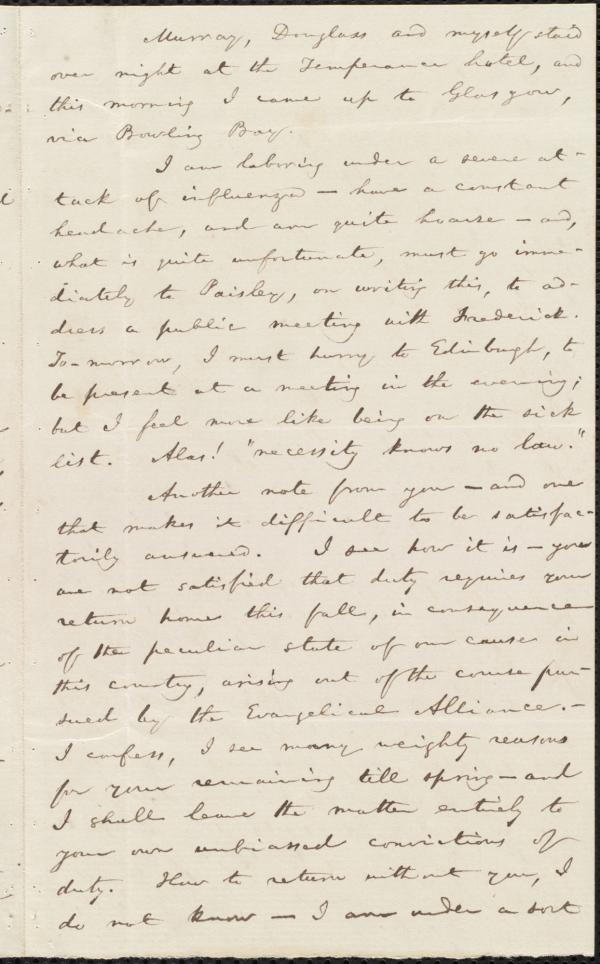 Murray, Douglass and myself staid
over night at the Temperance hotel, and
this morning I came up to Glasgow,
via Bowling Bay.
I am laboring under a severe at-
tack of influenza — have a constant
headache, and am quite hoarse — and,
what is quite unfortunate, must go imme-
diately to Paisley, on writing this, to ad-
dress a public meeting with Frederick.
To-morrow, I must hurry to Edinburgh, to
be present at a meeting in the evening;
but I feel more like being on the sick
list. Alas! "necessity knows no law."
Another note from you — and one
that makes it difficult to be satisfac-
torily answered. I see how it is — you
are not satisfied that duty requires your
return home this fall, in consequence
of the peculiar state of our cause in
this country, arising out of the course pur-
sued by the Evangelical Alliance. —
I confess, I see many weighty reasons
for your remaining till spring — and
I shall leave the matter entirely to
your own unbiassed convictions of
duty. How to return without you, I
do not know — I am under a sort